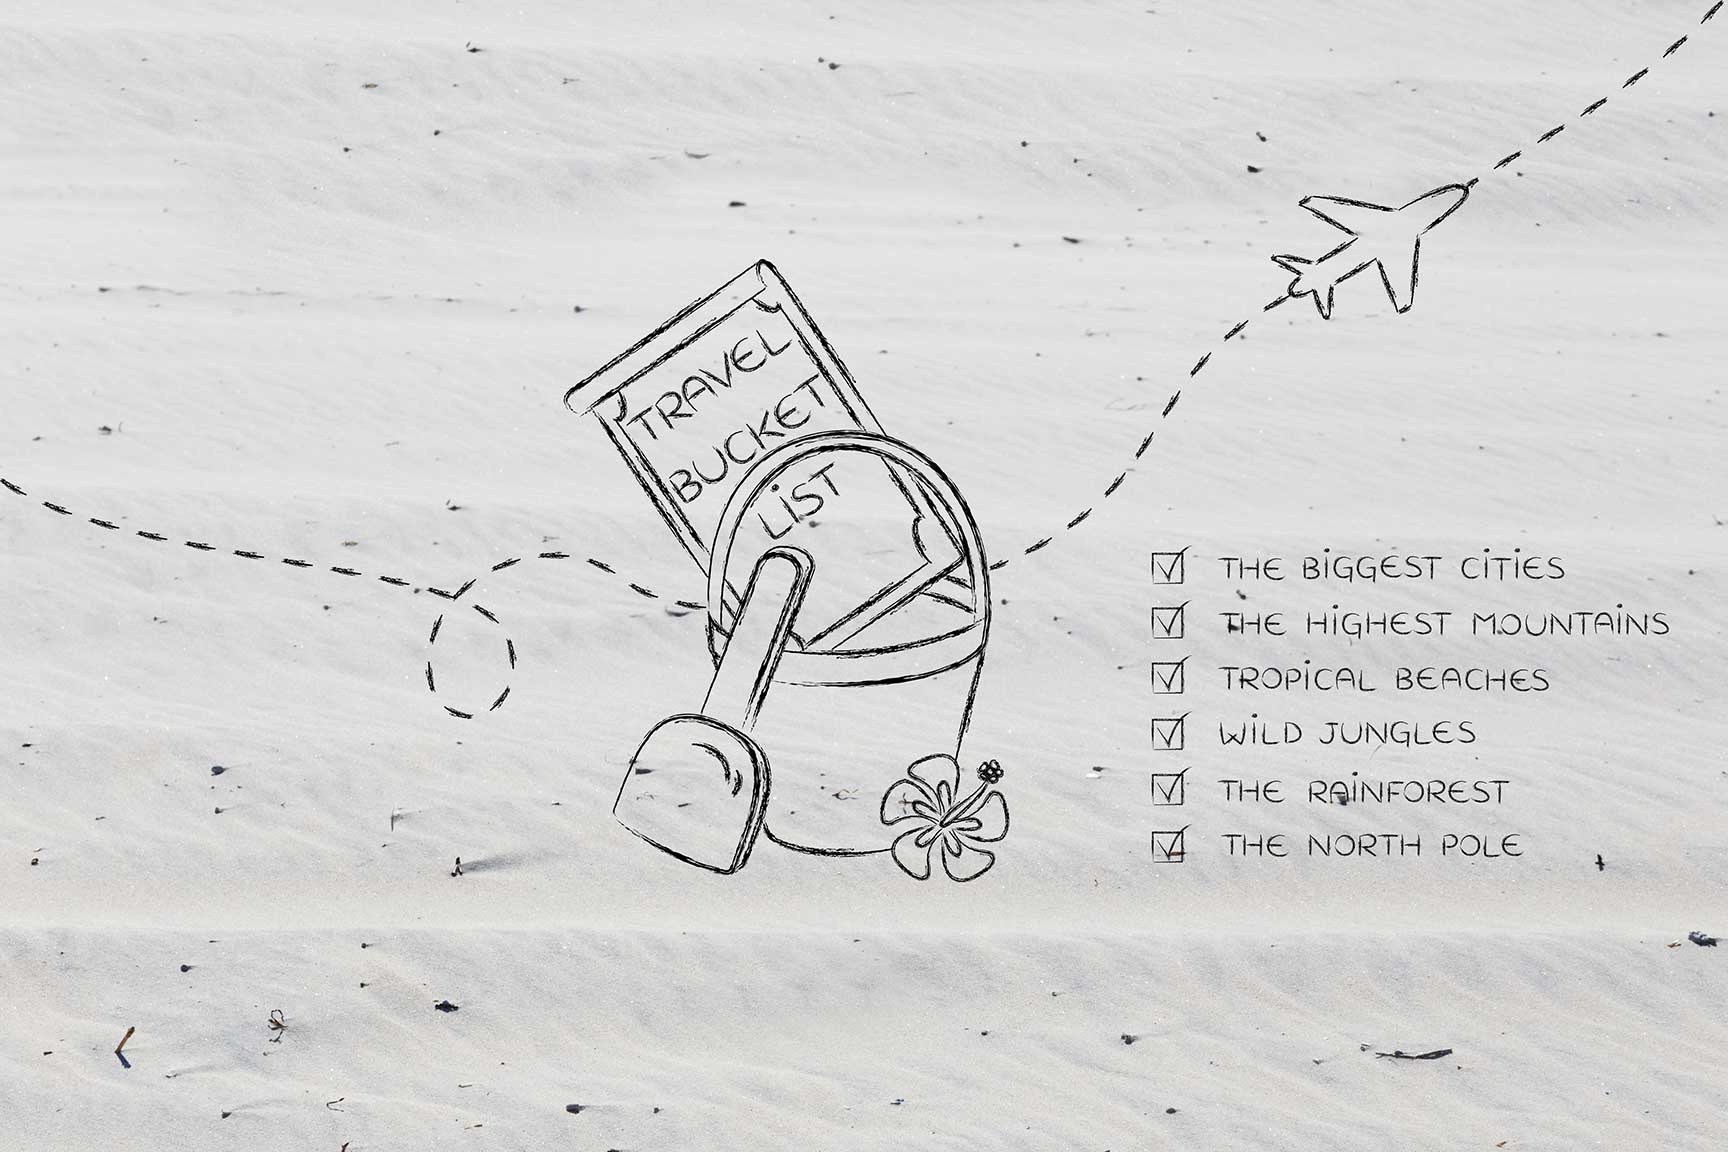 TRAVEL
BUCKET
LIST
THE BIGGEST CITIES
THE HIGHEST MOUNTAINS
TROPICAL BEACHES
WILD JUNGLES
THE RAINFOREST
THE NORTH POLE